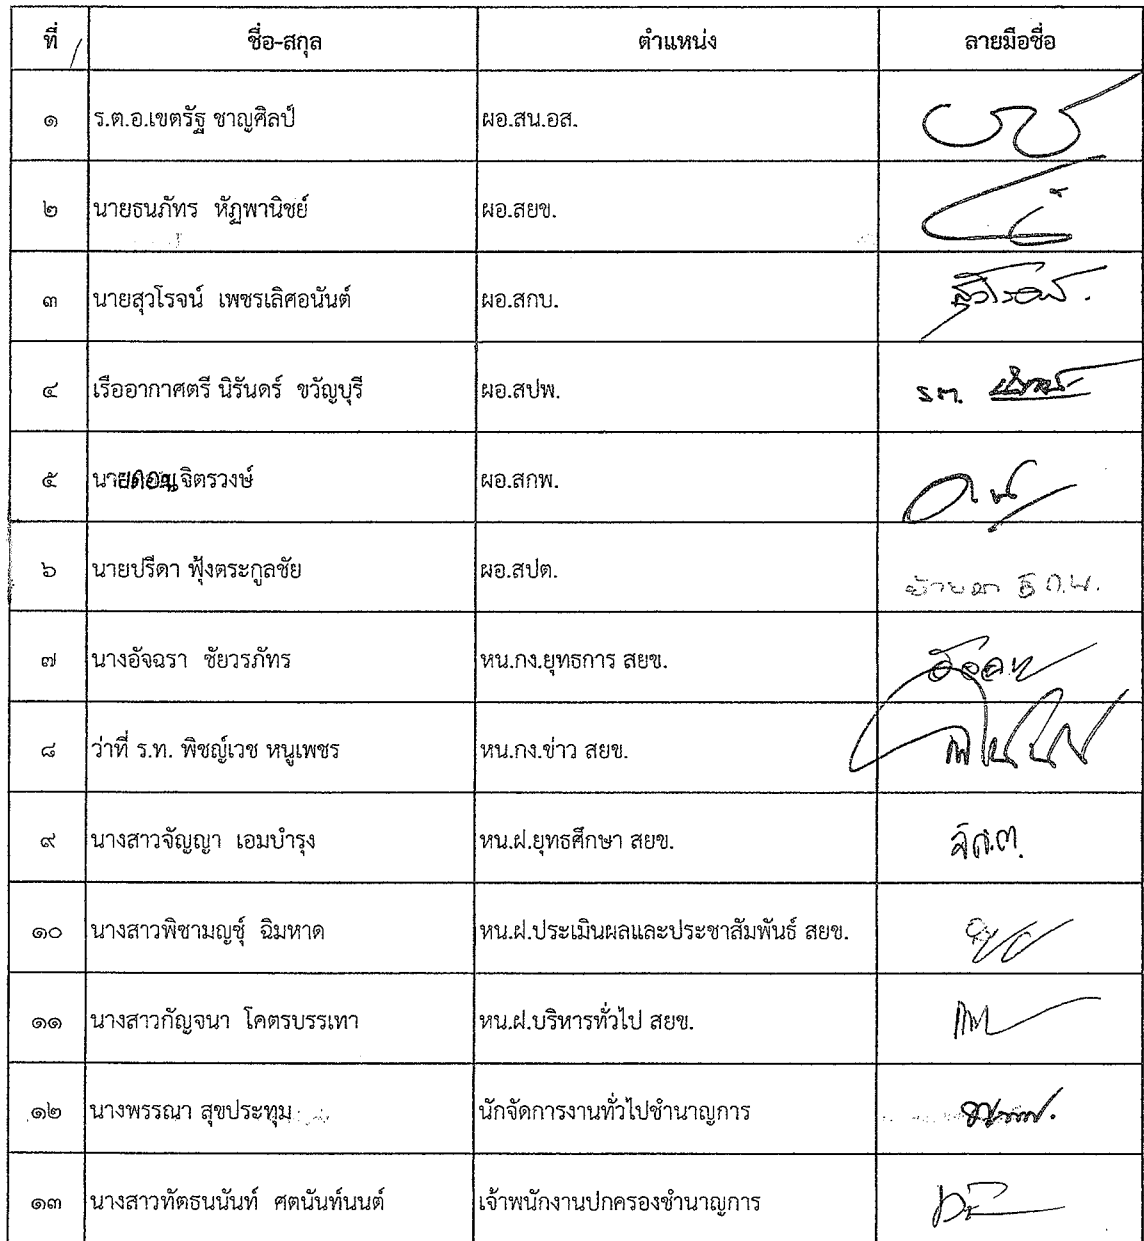 ที่ ชื่อ-สกุล ตำแหน่ง ลายมือชื่อ
๑ ร.ต.อ.เขตรัฐ ชาญศิลป์ ผอ.สน.อส.
๒ นายธนภัทร หัฏพานิชย์ ผอ.สยข.
๓ นายสุวโรจน์ เพชรเลิศอนันต์ ผอ.สกบ. สุวโรจน์.
๔ เรืออากาศตรี นิรันดร์ ขวัญบุรี ผอ.สปพ. ร.ต.
๕ จิตรวงษ์ ผอ.สกพ.
๖ นายปรีดา ฟุ้งตระกูลชัย ผอ.สปต.
๗ นางอัจฉรา ชัยวรภัทร หน.กง.ยุทธการ สยข.
๘ ว่าที่ ร.ท. พิชญ์เวช หนูเพชร หน.กง.ข่าว สยข.
๙ นางสาวจัญญา เอมบำรุง หน.ฝ.ยุทธศึกษา สยข.
๑๐ นางสาวพิชามญชุ์ ฉิมหาด หน.ฝ.ประเมินผลและประชาสัมพันธ์ สยข.
๑๑ นางสาวกัญจนา โคตรบรรเทา หน.ฝ.บริหารทั่วไป สยข.
๑๒ นางพรรณา สุขประทุม นักจัดการงานทั่วไปชำนาญการ
๑๓ นางสาวทัตธนนันท์ ศตนันท์นนต์ เจ้าพนักงานปกครองชำนาญการ